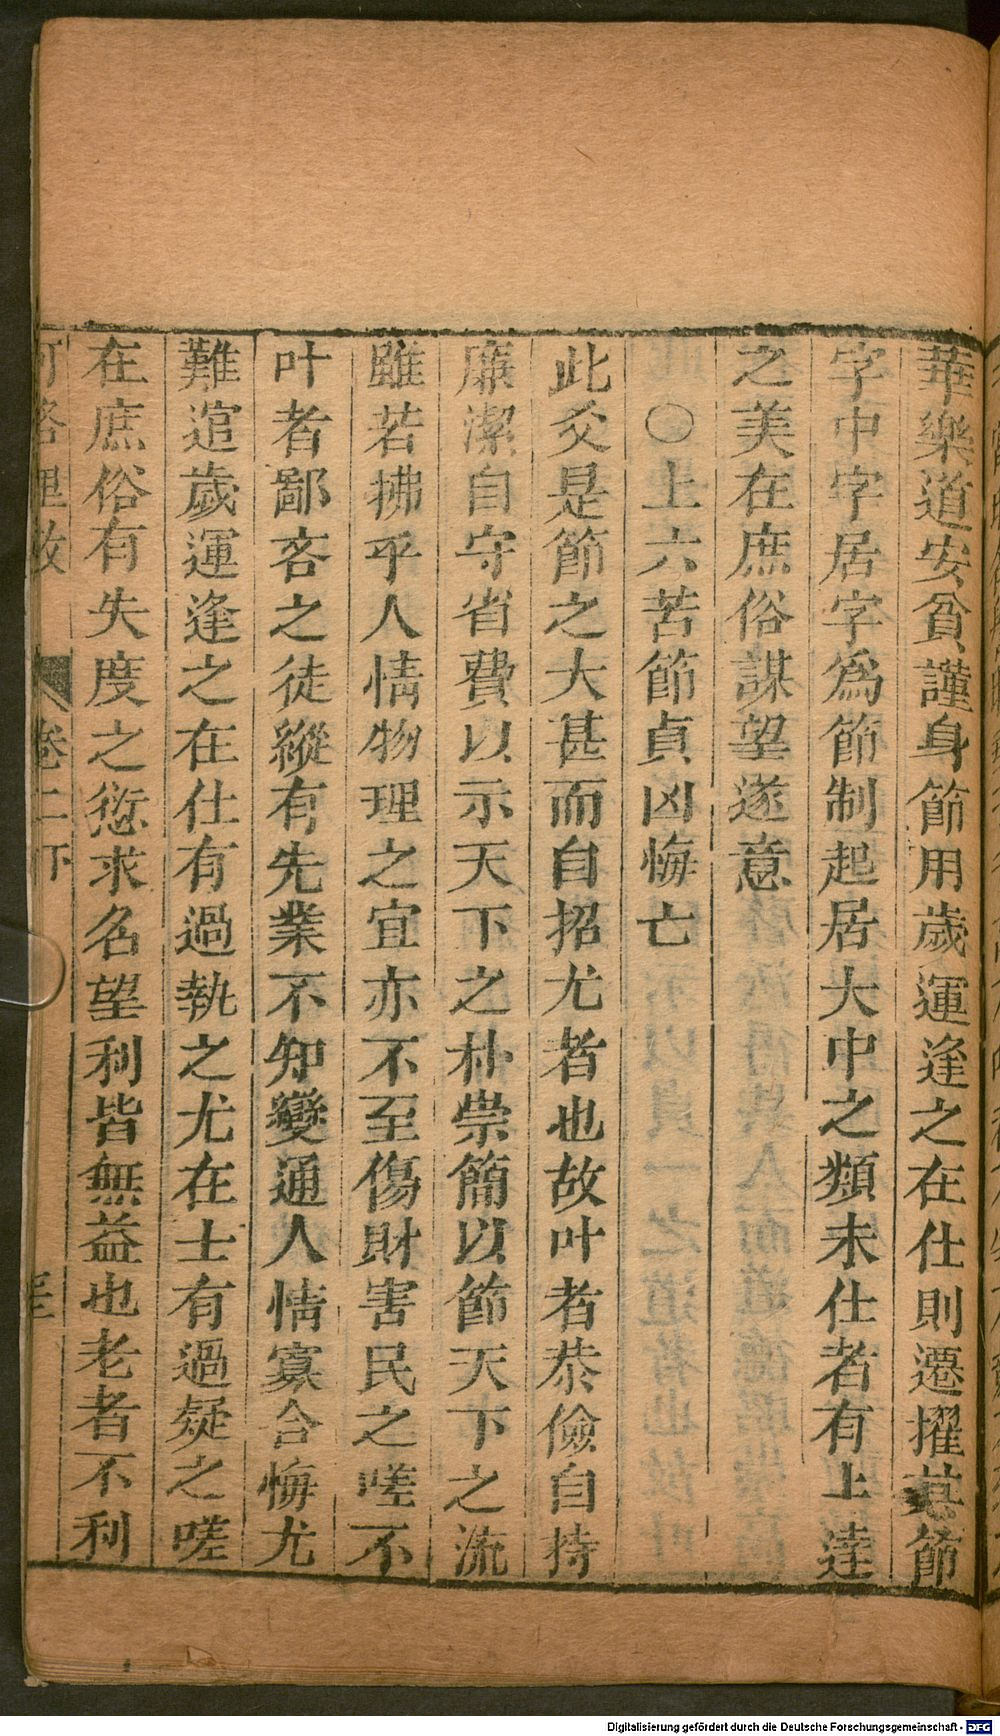 華樂道安貧謹身節用歲運逢之在仕則遷擢其節
字中字居字爲節制起居大中之類未仕者有上達
之美在庶俗謀望遂意
〇上六苦節貞凶悔亡
此爻是節之大甚而自招尤者也故叶者恭儉自持
廉潔自守省費以示天下之朴崇簡以節天下之流
雖若拂乎人情物理之宜亦不至傷財害民之嗟不
叶者鄙吝之徒縱有先業不知變通人情寡合悔尤
難逭歲運逢之在仕有過執之尤在士有過疑之嗟
在庶俗有失度之愆求名望利皆無益也老者不利
卷二下
Digitalisierung gefördert durch die Deutsche Forschungsgemeinschaft - DFG